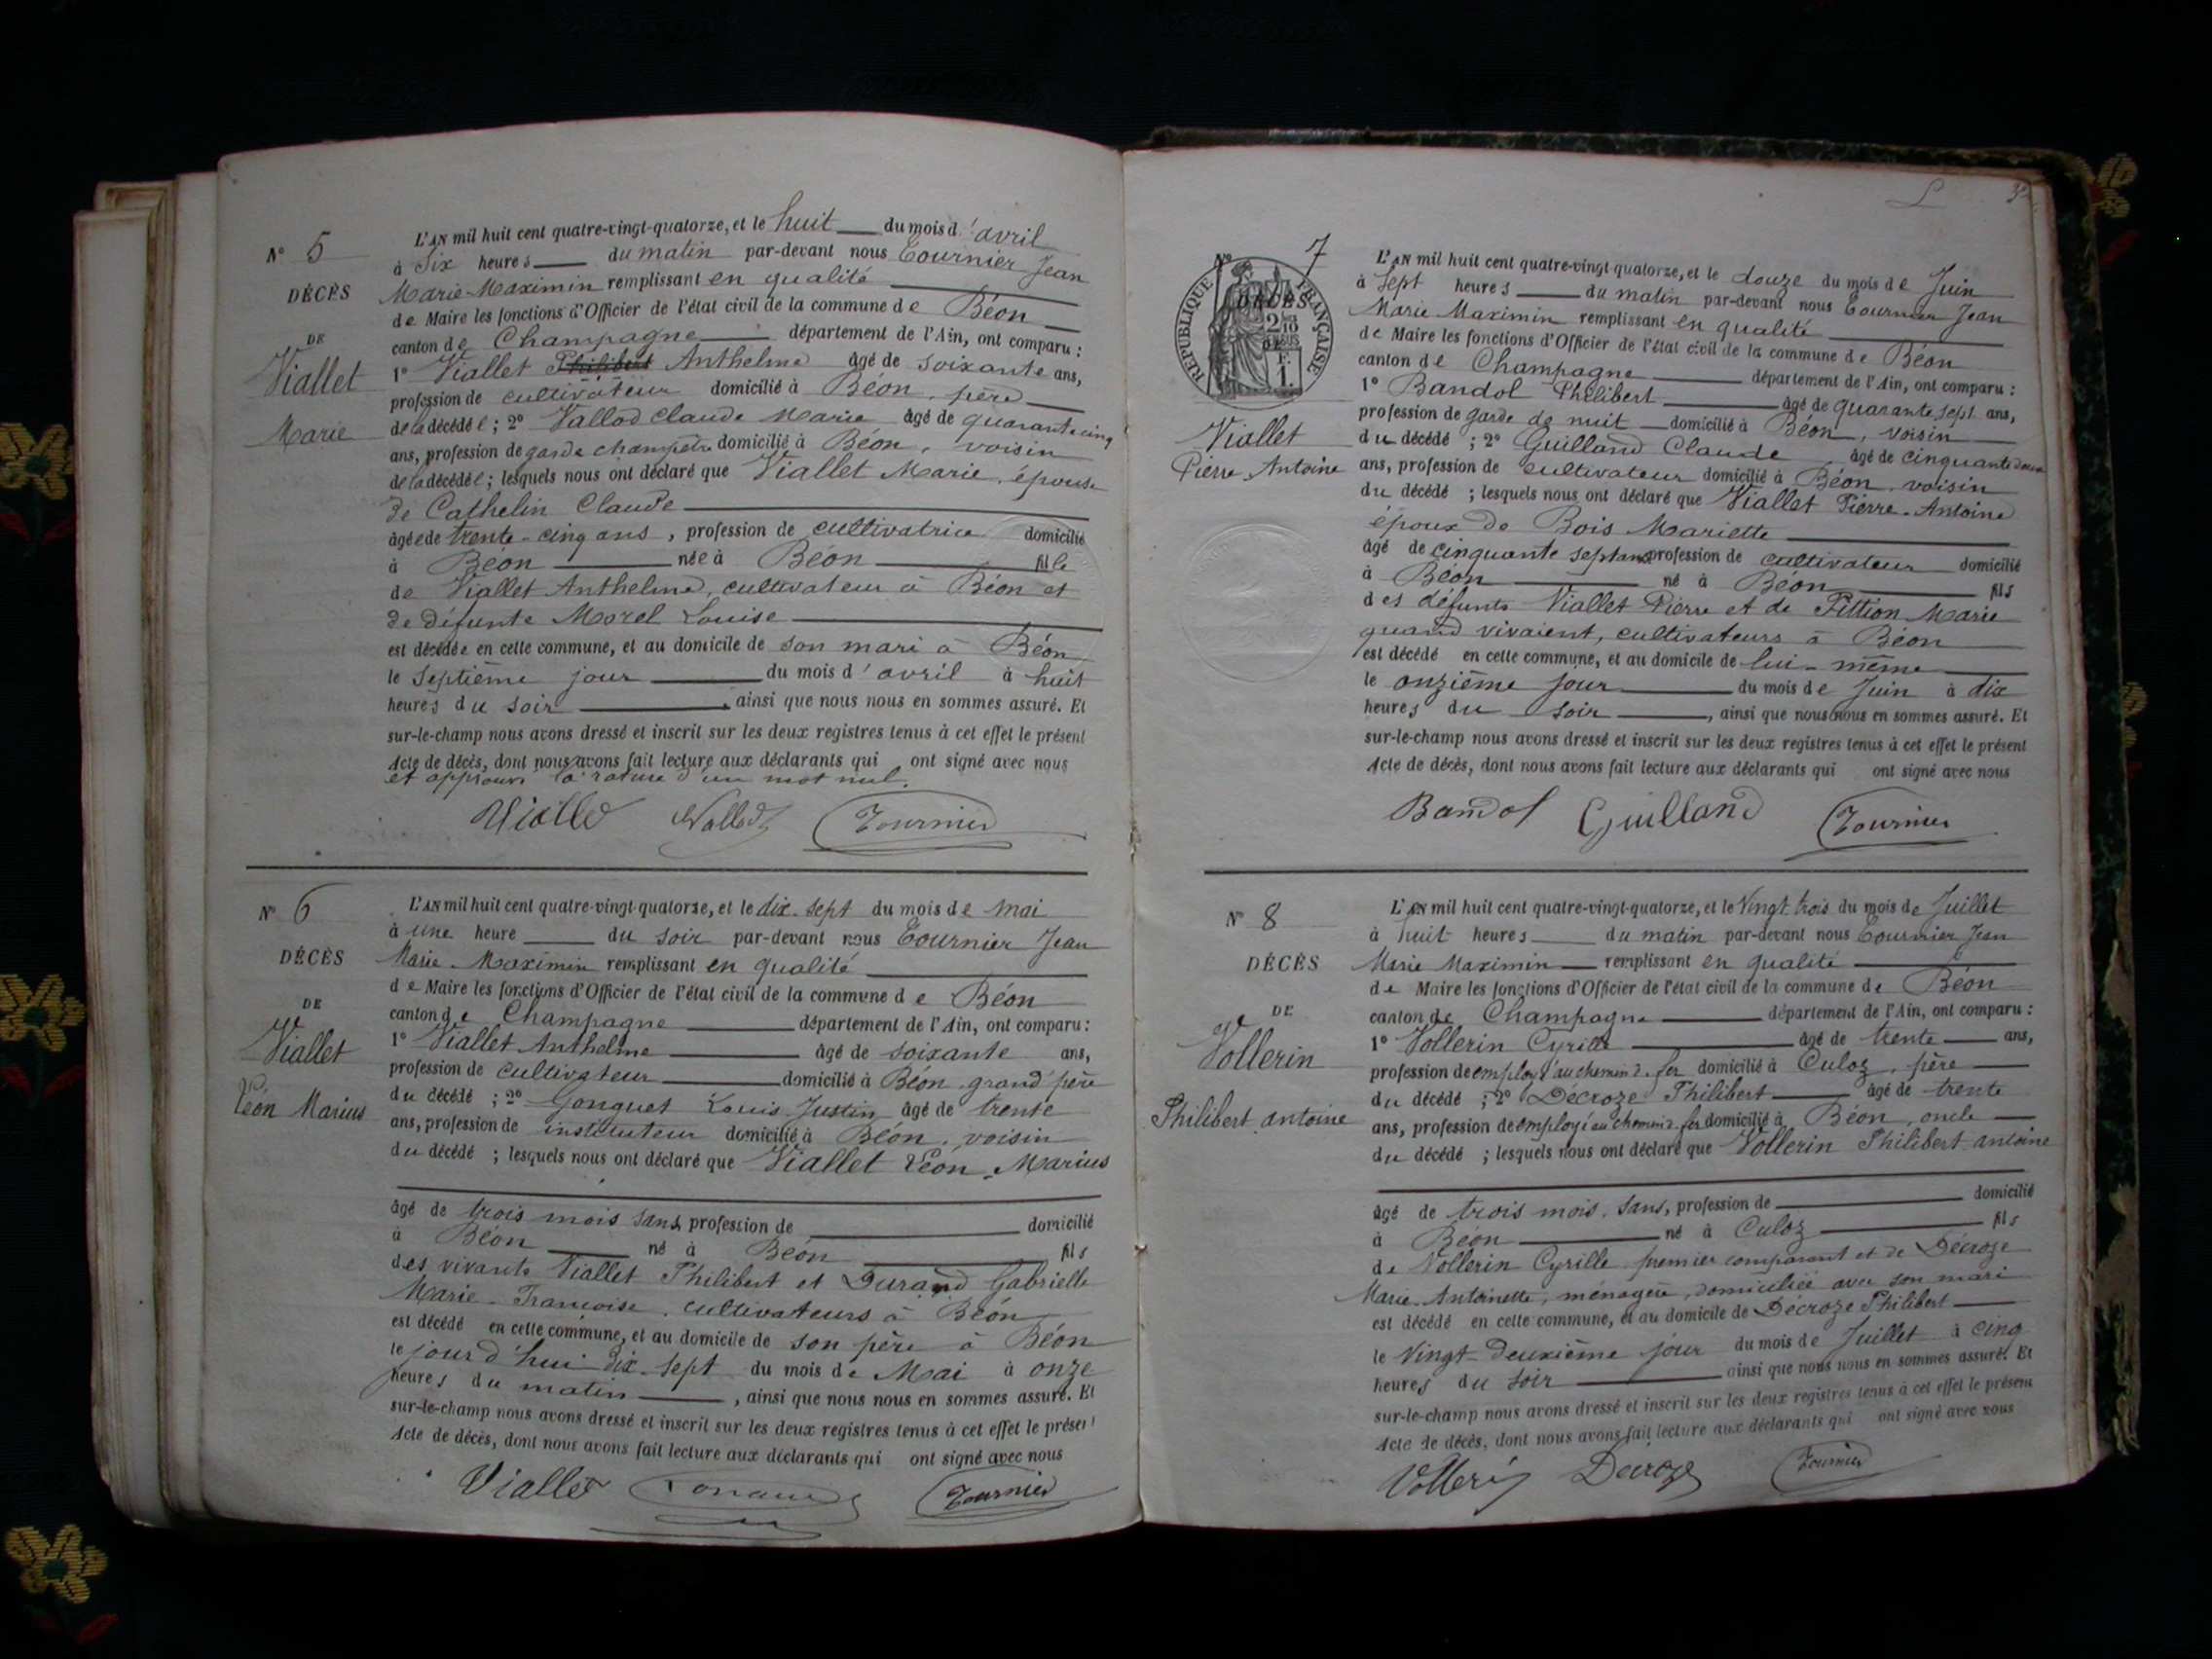 N° 5
DÉCÈS
DE
Viallet
Marie
L'AN mil huit cent quatre-vingt-quatorze, et le huit du mois d'avril
à Six heures du matin par-devant nous Tournier Jean
Marie-Maximin remplissant en qualité
de Maire les fonctions d'Officier de l'état civil de la commune de Béon
canton de Champagne département de l'Ain, ont comparu :
1° Viallet Philibert Anthelme âgé de soixante ans,
profession de cultivateur domicilié à Béon, père
de la décédée ; 2° Vallod Claude Marie âgé de quarante cinq
ans, profession de garde champêtre domicilié à Béon, voisin
de la décédée ; lesquels nous ont déclaré que Viallet Marie, épouse
de Cathelin Claude
âgée de trente-cinq ans, profession de cultivatrice domicilié
à Béon née à Béon fille
de Viallet Anthelme, cultivateur à Béon et
de défunte Morel Louise
est décédée en cette commune, et au domicile de son mari à Béon
le Septième jour du mois d'avril à huit
heures du soir, ainsi que nous nous en sommes assuré. Et
sur-le-champ nous avons dressé et inscrit sur les deux registres tenus à cet effet le présent
Acte de décès, dont nous avons fait lecture aux déclarants qui ont signé avec nous
et approuvé la rature d'un mot nul.
Viallet Vallod Tournier
N° 6
DÉCÈS
DE
Viallet
Léon Marius
L'AN mil huit cent quatre-vingt-quatorze, et le dix-sept du mois de mai
à une heure du soir par-devant nous Tournier Jean
Marie-Maximin remplissant en qualité
de Maire les fonctions d'Officier de l'état civil de la commune de Béon
canton de Champagne département de l'Ain, ont comparu :
1° Viallet Anthelme âgé de soixante ans,
profession de cultivateur domicilié à Béon, grand'père
du décédé ; 2° Gonguet Louis Justin âgé de trente
ans, profession de instituteur domicilié à Béon, voisin
du décédé ; lesquels nous ont déclaré que Viallet Léon-Marius
âgé de trois mois sans, profession de domicilié
à Béon né à Béon fils
des vivants Viallet Philibert et Durand Gabrielle
Marie-Françoise, cultivateurs à Béon
est décédé en cette commune, et au domicile de son père à Béon
le jourd'hui dix-sept du mois de Mai à onze
heures du matin, ainsi que nous nous en sommes assuré. Et
sur-le-champ nous avons dressé et inscrit sur les deux registres tenus à cet effet le présent
Acte de décès, dont nous avons fait lecture aux déclarants qui ont signé avec nous
Viallet Tournier
N° 7
RÉPUBLIQUE FRANÇAISE
DÉCÈS
Viallet
Pierre Antoine
L'AN mil huit cent quatre-vingt-quatorze, et le douze du mois de Juin
à Sept heures du matin par-devant nous Tournier Jean
Marie Maximin remplissant en qualité
de Maire les fonctions d'Officier de l'état civil de la commune de Béon
canton de Champagne département de l'Ain, ont comparu :
1° Bandol Philibert âgé de quarante sept ans,
profession de garde de nuit domicilié à Béon, voisin
du décédé ; 2° Guilland Claude âgé de cinquante deux
ans, profession de cultivateur domicilié à Béon, voisin
du décédé ; lesquels nous ont déclaré que Viallet Pierre-Antoine
époux de Bois Mariette
âgé de cinquante sept ans profession de cultivateur domicilié
à Béon né à Béon fils
des défunts Viallet Pierre et de Pittion Marie
quand vivaient, cultivateurs à Béon
est décédé en cette commune, et au domicile de lui-même
le onzième jour du mois de Juin à dix
heures du soir, ainsi que nous nous en sommes assuré. Et
sur-le-champ nous avons dressé et inscrit sur les deux registres tenus à cet effet le présent
Acte de décès, dont nous avons fait lecture aux déclarants qui ont signé avec nous
Bandol Guilland Tournier
N° 8
DÉCÈS
DE
Vollerin
Philibert antoine
L'AN mil huit cent quatre-vingt-quatorze, et le Vingt trois du mois de Juillet
à huit heures du matin par-devant nous Tournier Jean
Marie Maximin remplissant en qualité
de Maire les fonctions d'Officier de l'état civil de la commune de Béon
canton de Champagne département de l'Ain, ont comparu :
1° Vollerin Cyrille âgé de trente ans,
profession de employé au chemin d. fer domicilié à Culoz, père
du décédé ; 2° Décroze Philibert âgé de trente
ans, profession de employé au chemin d. fer domicilié à Béon, oncle
du décédé ; lesquels nous ont déclaré que Vollerin Philibert antoine
âgé de trois mois, sans, profession de domicilié
à Béon né à Culoz fils
de Vollerin Cyrille premier comparant et de Décroze
Marie-Antoinette, ménagère, domiciliée avec son mari
est décédé en cette commune, et au domicile de Décroze Philibert
le Vingt-deuxième jour du mois de Juillet à cinq
heures du soir ainsi que nous nous en sommes assuré. Et
sur-le-champ nous avons dressé et inscrit sur les deux registres tenus à cet effet le présent
Acte de décès, dont nous avons fait lecture aux déclarants qui ont signé avec nous
Vollerin Décroze Tournier